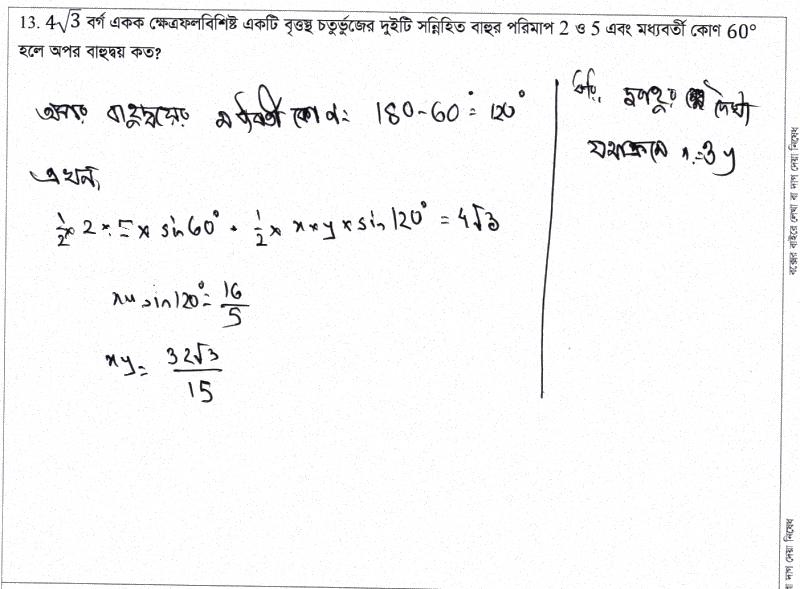 13. 4√3 বর্গ একক ক্ষেত্রফলবিশিষ্ট একটি বৃত্তস্থ চতুর্ভুজের দুইটি সন্নিহিত বাহুর পরিমাপ 2 ও 5 এবং মধ্যবর্তী কোণ 60°
হলে অপর বাহুদ্বয় কত?
অপর বাহুদ্বয়ের মধ্যবর্তী কোণ = 180-60° = 120°
এখন,
1/2 × 2 × 5 × sin60° + 1/2 × x × y × sin120° = 4√3
xy sin120° = 16/5
xy = 32√3/15
ধরি, দৈর্ঘ্য
যথাক্রমে x ও y
বক্সের বাইরে লেখা বা দাগ দেয়া নিষেধ
বা দাগ দেয়া নিষেধ